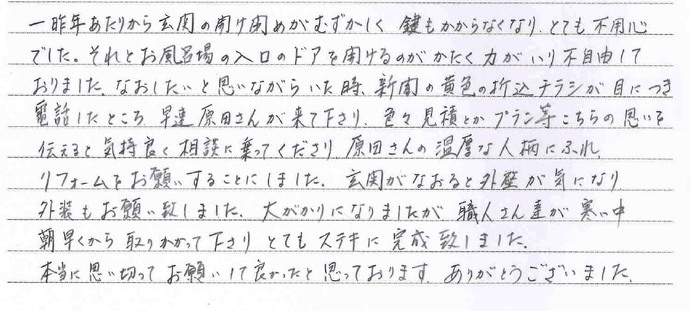 一昨年あたりから玄関の開け閉めがむずかしく 鍵もかからなくなり、とても不用心
でした。それとお風呂場の入口のドアを開けるのがかたく力がいり不自由して
おりました。なおしたいと思いながらいた時、新聞の黄色の折込チラシが目につき
電話したところ 早速 原田さんが来て下さり、色々見積とかプラン等こちらの思いを
伝えると気持良く相談に乗ってくださり、原田さんの温厚な人柄にふれ、
リフォームをお願いすることにしました。玄関がなおると外壁が気になり
外装もお願い致しました。大がかりになりましたが 職人さん達が 寒い中
朝早くから取りかかって下さり とてもステキに 完成致しました。
本当に思い切って お願いして良かったと思っております。ありがとうございました。